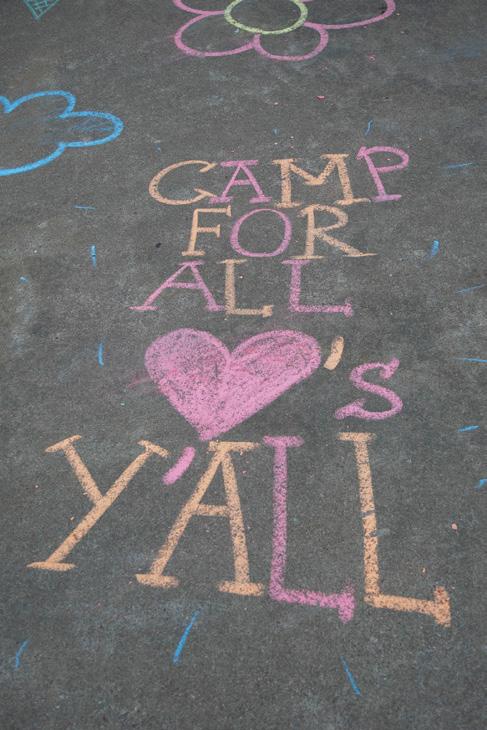 CAMP
FOR
ALL
♥'s
Y'ALL